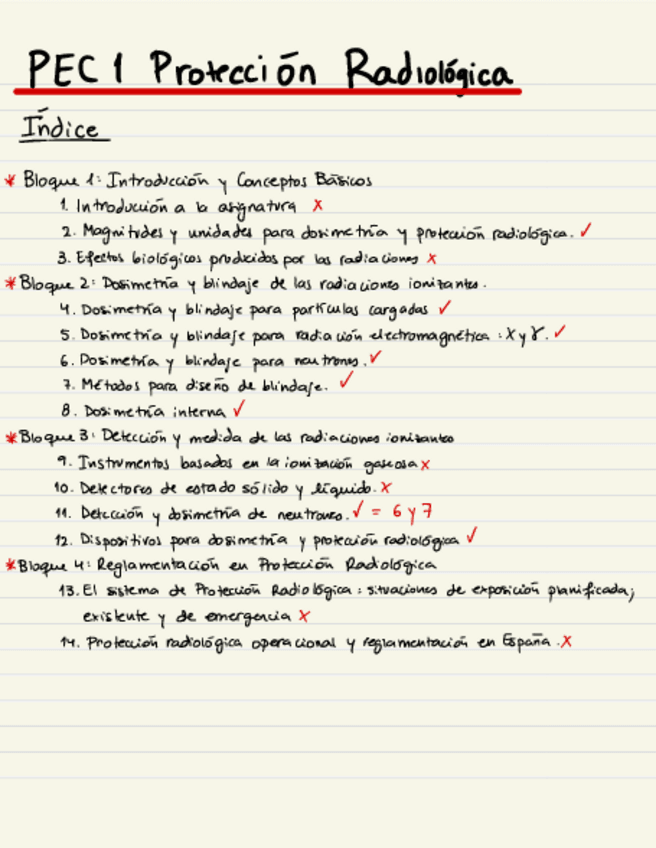 PEC 1 Protección Radiológica
Índice
* Bloque 1: Introducción y Conceptos Básicos
1. Introducción a la asignatura x
2. Magnitudes y unidades para dosimetría y protección radiológica. ✓
3. Efectos biológicos producidos por las radiaciones x
* Bloque 2: Dosimetría y blindaje de las radiaciones ionizantes.
4. Dosimetría y blindaje para partículas cargadas ✓
5. Dosimetría y blindaje para radiación electromagnética: X y γ. ✓
6. Dosimetría y blindaje para neutrones. ✓
7. Métodos para diseño de blindaje. ✓
8. Dosimetría interna ✓
* Bloque 3: Detección y medida de las radiaciones ionizantes
9. Instrumentos basados en la ionización gaseosa x
10. Detectores de estado sólido y líquido. x
11. Detección y dosimetría de neutrones. ✓ = 6 y 7
12. Dispositivos para dosimetría y protección radiológica ✓
* Bloque 4: Reglamentación en Protección Radiológica
13. El sistema de Protección Radiológica: situaciones de exposición planificada,
existente y de emergencia x
14. Protección radiológica operacional y reglamentación en España. x